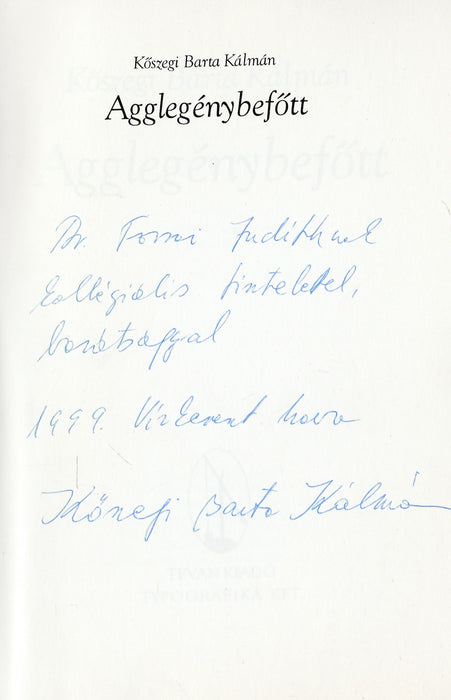 Kőszegi Barta Kálmán
Agglegénybefőtt
Dr. Forrai Judithnak
kollégiális tisztelettel,
barátsággal
1999. Vízkereszt hava
Kőszegi Barta Kálmán
TEVAN KIADÓ
TYPOGRAFIKA KFT.